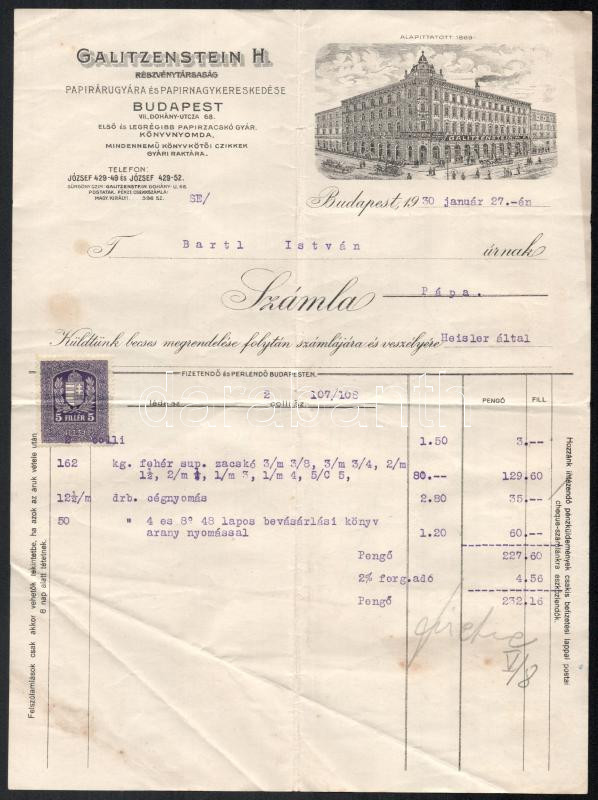 GALITZENSTEIN H.
RÉSZVÉNYTÁRSASÁG
PAPIRÁRUGYÁRA ÉS PAPIRNAGYKERESKEDÉSE
BUDAPEST
VII. DOHÁNY-UTCZA 68.
ELSŐ ÉS LEGRÉGIBB PAPIRZACSKÓ GYÁR.
KÖNYVNYOMDA,
MINDENNEMŰ KÖNYVKÖTŐI CZIKKEK
GYÁRI RAKTÁRA.
TELEFON:
JÓZSEF 429-49 ÉS JÓZSEF 429-52.
SÜRGÖNYCZIM: GALITZENSTEIN DOHÁNY-U. 68.
POSTATAK. PÉNZT. CSEKKSZÁMLA:
MAGY. KIRÁLYI 596 52.
ALAPITTATOTT 1869
GALITZENSTEIN H.
SE/
Budapest, 1930 január 27.-én
T Bartl István úrnak
Számla Pápa.
Küldtünk becses megrendelése folytán számlájára és veszélyére Heisler által
FIZETENDŐ ÉS PERLENDŐ BUDAPESTEN.
2 107/108
PENGŐ FILL
5 FILLÉR 5
2 colli 1.50 3.--
162 kg. fehér sup. zacskó 3/m 3/8, 3/m 3/4, 2/m
1½, 2/m 1, 1/m 3, 1/m 4, 5/C 5, 80.-- 129.60
12½/m drb. cégnyomás 2.80 35.--
50 " 4 es 8° 48 lapos bevásárlási könyv
arany nyomással 1.20 60.--
Pengő 227.60
2% forg.adó 4.56
Pengő 232.16
V/8
Felszólamlások csak akkor vehetők tekintetbe, ha azok az áruk vétele után
8 nap alatt tétetnek.
Hozzánk intézendő pénzküldemények csakis befizetési lappal postai
cheque-számlánkra eszközlendők.
darabanth